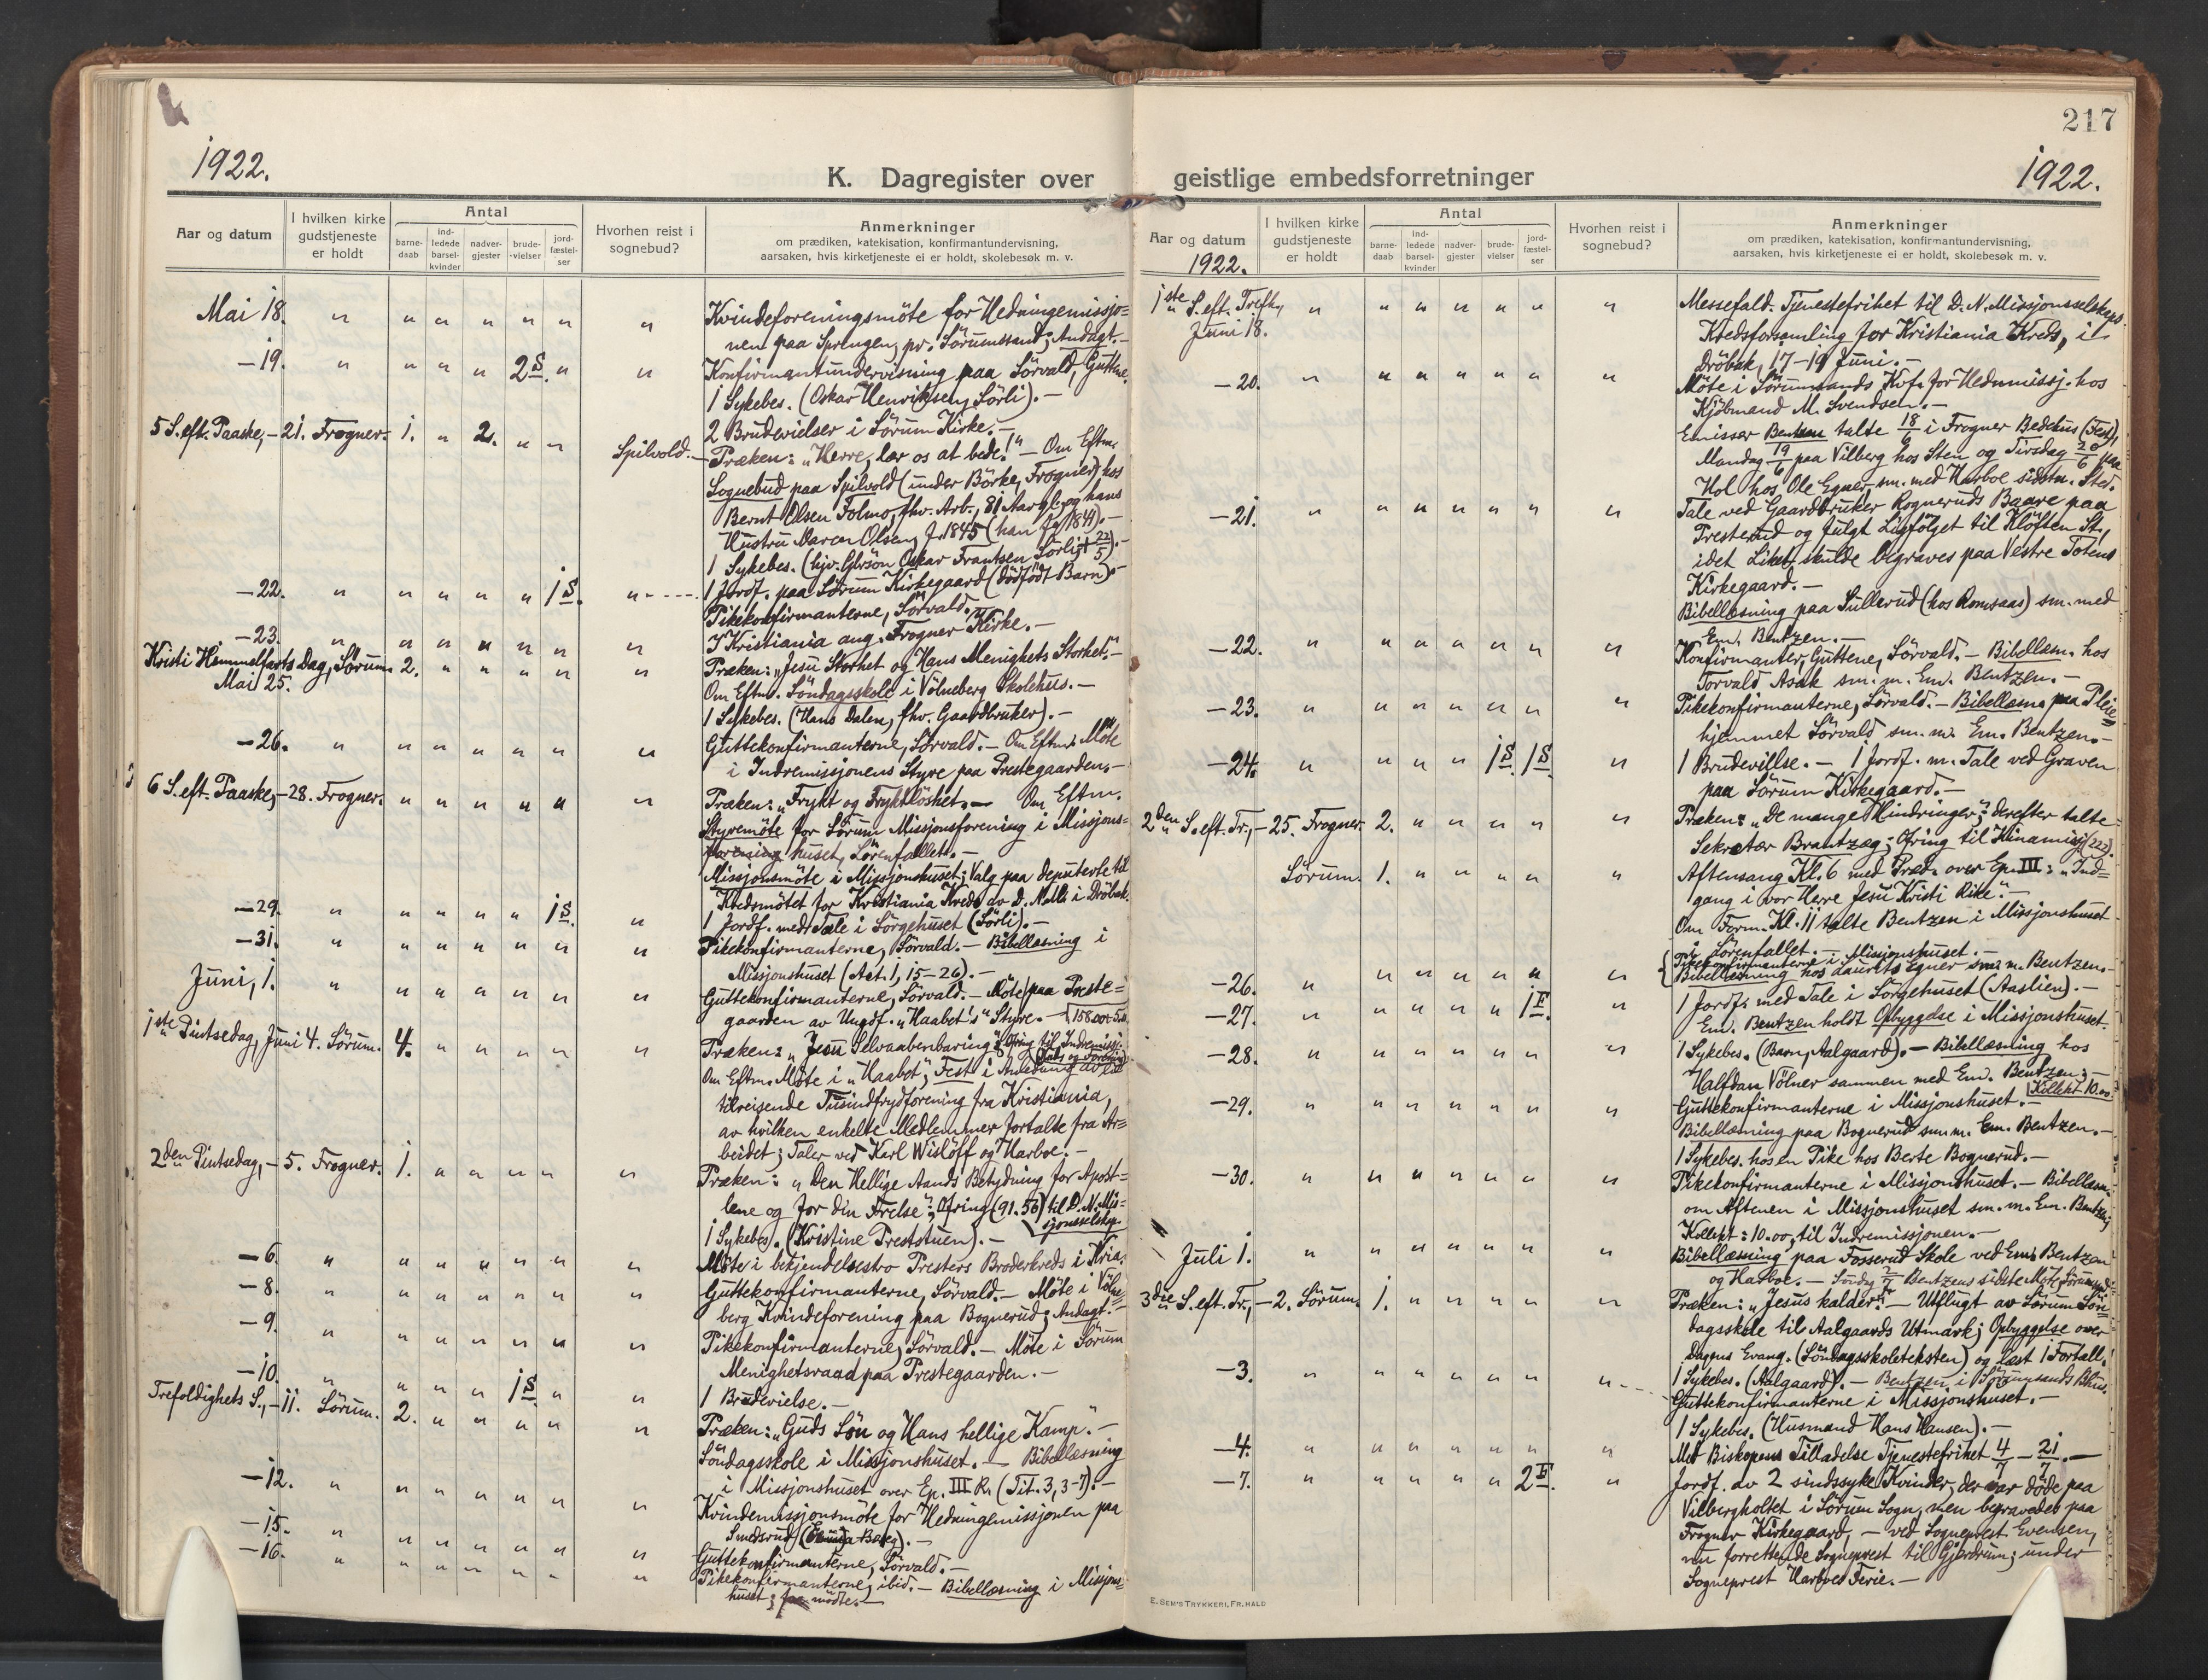 217
1922.
K. Dagregister over geistlige embedsforretninger
1922.
Aar og datum
I hvilken kirke gudstjeneste er holdt
Antal
barne-daab
ind-ledede barsel-kvinder
nadver-gjester
brude-vielser
jord-fæstel-ser
Hvorhen reist i sognebud?
Anmerkninger
om prædiken, katekisation, konfirmantundervisning,
aarsaken, hvis kirketjeneste ei er holdt, skolebesøk m. v.
Mai 18. " " " " " " " Kvindeforeningsmöte for Hedningemissjo=
nen paa Sprengen, pr. Sörumsand; Andagt.-
-19. " " " " 2 S. " " Konfirmantundervisning paa Sörvald, Guttene.
1 Sykebes. (Oskar Henriksen Sörli).-
2 Brudevielser i Sörum Kirke.-
5 S. eft. Paaske, -21. Frogner. 1. " 2. " " Spilvold.- Præken: "Herre, lær os at bede!" - Om Eftm.
Sognebud paa Spilvold (under Börke, Frogner) hos
Bernt Olsen Folmo, fhv. Arb., 81 Aar gl. og hans
Hustru Maren Olsen, f. 1845 (han fg. 1841).-
1 Sykebes. (hjv. Oskar Frantsen Sörli, † 22/5).-
-22. " " " " " 1 S. " 1 Jordf. paa Sörum Kirkegaard (dödfödt Barn).-
Pikekonfirmanterne, Sörvald.-
-23. " " " " " " " I Kristiania ang. Frogner Kirke.-
Kristi Himmelfarts Dag, Sörum. 2. " " " " " Præken: "Jesu Storhet og Hans Menighets Storhet."-
Mai 25. Om Eftm. Söndagsskole i Völneberg Skolehus.-
1 Sykebes. (Hans Dalen, fhv. Gaardbruker).-
-26. " " " " " " " Guttekonfirmanterne, Sörvald.- Om Eftm. Möte
i Indremissjonens Styre paa Prestegaarden.-
6 S. eft. Paaske, -28. Frogner. " " " " " " Præken: "Frykt og Fryktlöshet.- Om Eftm.
Styremöte for Sörum Missjonsforening i Missjons=
huset, Sörenfallet.-
Missjonsmöte i Missjonshuset; Valg paa deputerte til
Kredsmötet for Kristiania Kreds av D. N. M. i Dröbak.
-29. " " " " " 1 S. " 1 Jordf. med Tale i Sörgehuset (Sörli).-
-31. " " " " " " " Pikekonfirmanterne, Sörvald.- Bibellæsning i
Missjonshuset (Act. 1, 15-26).-
Juni, 1. " " " " " " " Guttekonfirmanterne, Sörvald.- Möte paa Preste=
gaarden av Ungdf. "Haabet's" Styre.-
1ste Pintsedag, Juni 4. Sörum. 4. " " " " " Præken: "Jesu Selvaabenbaring"; Ofring til Indremissj.
Om Eftm. Möte i "Haabet"; Fest i Anledning av en
tilreisende Tusindfrydforening fra Kristiania,
av hvilken enkelte Medlemmer fortalte fra Ar=
beidet; Taler ved Karl Wislöff og Harboe.-
2den Pintsedag, -5. Frogner. 1. " " " " " Præken: "Den Hellige Aands Betydning for Apost=
lene og for din Frelse"; Ofring (91.56) til D. N. Mis=
sjonsselskap.
1 Sykebes. (Kristine Preststuen).-
-6. " " " " " " " Möte i bekjendelsestro Presters Broderkreds i Kria.
-8. " " " " " " " Guttekonfirmanterne, Sörvald.- Möte i Völne=
berg Kvindeforening paa Bognerud; Andagt.-
-9. " " " " " " " Pikekonfirmanterne, Sörvald.- Möte i Sörum
Menighetsraad paa Prestegaarden.-
-10. " " " " 1 S. " " 1 Brudevielse.-
Trefoldighets S., -11. Sörum. 2. " " " " " Præken: "Guds Sön og Hans hellige Kamp."-
Söndagsskole i Missjonshuset.- Bibellæsning
i Missjonshuset over Ep. III R. (Tit. 3, 3-7).-
-12. " " " " " " " Kvindemissjonsmöte for Hedningemissjonen paa
Smedsrud.-
-15. " " " " " " " Guttekonfirmanterne, Sörvald.-
-16. " " " " " " " Pikekonfirmanterne, ibid.- Bibellæsning i Missjons=
huset; mödte.-
Aar og datum
1922.
I hvilken kirke gudstjeneste er holdt
Antal
barne-daab
ind-ledede barsel-kvinder
nadver-gjester
brude-vielser
jord-fæstel-ser
Hvorhen reist i sognebud?
Anmerkninger
om prædiken, katekisation, konfirmantundervisning,
aarsaken, hvis kirketjeneste ei er holdt, skolebesøk m. v.
1ste S. eft. Trefh., " " " " " " " Messefald. Tjenestefrihet til D. N. Missjonsselskaps
Juni 18. Kredsforsamling for Kristiania Kreds, i
Dröbak, 17-19 Juni.-
-20. " " " " " " " Möte i Sörumsands Kvf. for Hedn.missj. hos
Kjöbmand M. Svendsen.-
Emissær Bentzen talte 18/6 i Frogner Bedehus (Fest),
Mandag 19/6 paa Vilberg hos Sten og Tirsdag 20/6 paa
Hol hos Ole Egner sm. med Harboe sidstn. Sted.
-21. " " " " " " " Tale ved Gaardbruker Rogneruds Baare paa
Presterud og fulgt Ligfölget til Klöften St.,
idet Liket skulde begraves paa Vestre Totens
Kirkegaard.-
Bibellæsning paa Sullerud (hos Romsaas) sm. med
Em. Bentzen.-
-22. " " " " " " " Konfirmanter, Guttene, Sörvald.- Bibellæsn. hos
Torvald Asak sm. m. Em. Bentzen.-
-23. " " " " " " " Pikekonfirmanterne, Sörvald.- Bibellæsn. paa Pleie=
hjemmet Sörvald sm. m. Em. Bentzen.-
-24. " " " " 1 S. 1 S. " 1 Brudevielse.- 1 Jordf. m. Tale ved Graven
paa Sörum Kirkegaard.-
2den S. eft. Tr., -25. Frogner. 2. " " " " " Præken: "De mange Hindringer"; derefter talte
Sekretær Brantzæg; Ofring til Kinamissj. (222).
Sörum. 1. " " " " " Aftensang Kl. 6 med Præd. over Ep. III: "Ind=
gang i vor Herre Jesu Kristi Rike."-
Om Form. Kl. 11 talte Bentzen i Missjonshuset
i Sörenfallet.-
Pikekonfirmanterne i Missjonshuset.-
-26. " " " " " " " Bibellæsning hos Laurits Egner sm. m. Bentzen.-
-27. " " " " " 1 F. " 1 Jordf. med Tale i Sörgehuset (Aaslien).-
Em. Bentzen holdt Opbyggelse i Missjonshuset.
-28. " " " " " " " 1 Sykebes. (Barn, Aalgaard).- Bibellæsning hos
Halfdan Völner sammen med Em. Bentzen;-
Kollekt 10.00
-29. " " " " " " " Guttekonfirmanterne i Missjonshuset.-
Bibellæsning paa Bognerud sm. m. Em. Bentzen.-
1 Sykebes. hos en Pike hos Berte Bognerud.-
-30. " " " " " " " Pikekonfirmanterne i Missjonshuset.- Bibellæsn.
om Aftenen i Missjonshuset sm. m. Em. Bentzen;
Kollekt: 10.00, til Indremissjonen.-
Juli 1. " " " " " " " Bibellæsning paa Fosserud Skole ved Em. Bentzen
og Harboe.- Söndag 2/7 Bentzens sidste Möte,
3die S. eft. Tr., -2. Sörum. 1. " " " " " Præken: "Jesus kalder."- Utflugt av Sörum Sön=
dagsskole til Aalgaards Utmark; Opbyggelse over
dagens Evang. (Söndagsskoleteksten) og læst 1 Fortall.
-3. " " " " " " " 1 Sykebes. (Aalgaard).- Bentzen i Sörumsands Bhus.
Guttekonfirmanterne i Missjonshuset.-
1 Sykebes. (Husmand Hans Hansen).-
-4. " " " " " " " Med Biskopens Tilladelse Tjenestefrihet 4/7 - 21/7.-
-7. " " " " " 2 F. " Jordf. av 2 sindssyke Kvinder, der var döde paa
Vilbergholtet i Sörum Sogn, men begravedes paa
Frogner Kirkegaard,- ved Sogneprest Evensen,
nu forrettende Sogneprest til Gjerdrum; under
Sogneprest Harboes Ferie.-
E. SEM'S TRYKKERI, FR.HALD